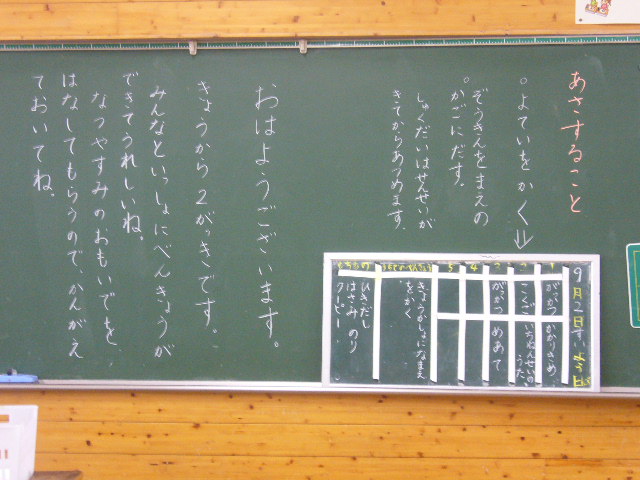 あさすること
○よていをかく
○ぞうきんをまえの
かごにだす。
しゅくだいはせんせいが
きてからあつめます。
おはようございます。
きょうから2がっきです。
みんなといっしょにべんきょうが
できてうれしいね。
なつやすみのおもいでを
はなしてもらうので、かんがえ
ておいてね。
9月2日すいようび
1 がっかつ かかりきめ
2 こくご いちねんせいのうた
3 がっかつ めあて
4
5
きょうかしょになまえ
をかく
もちもの
ひきだし
はさみ のり
クーピー